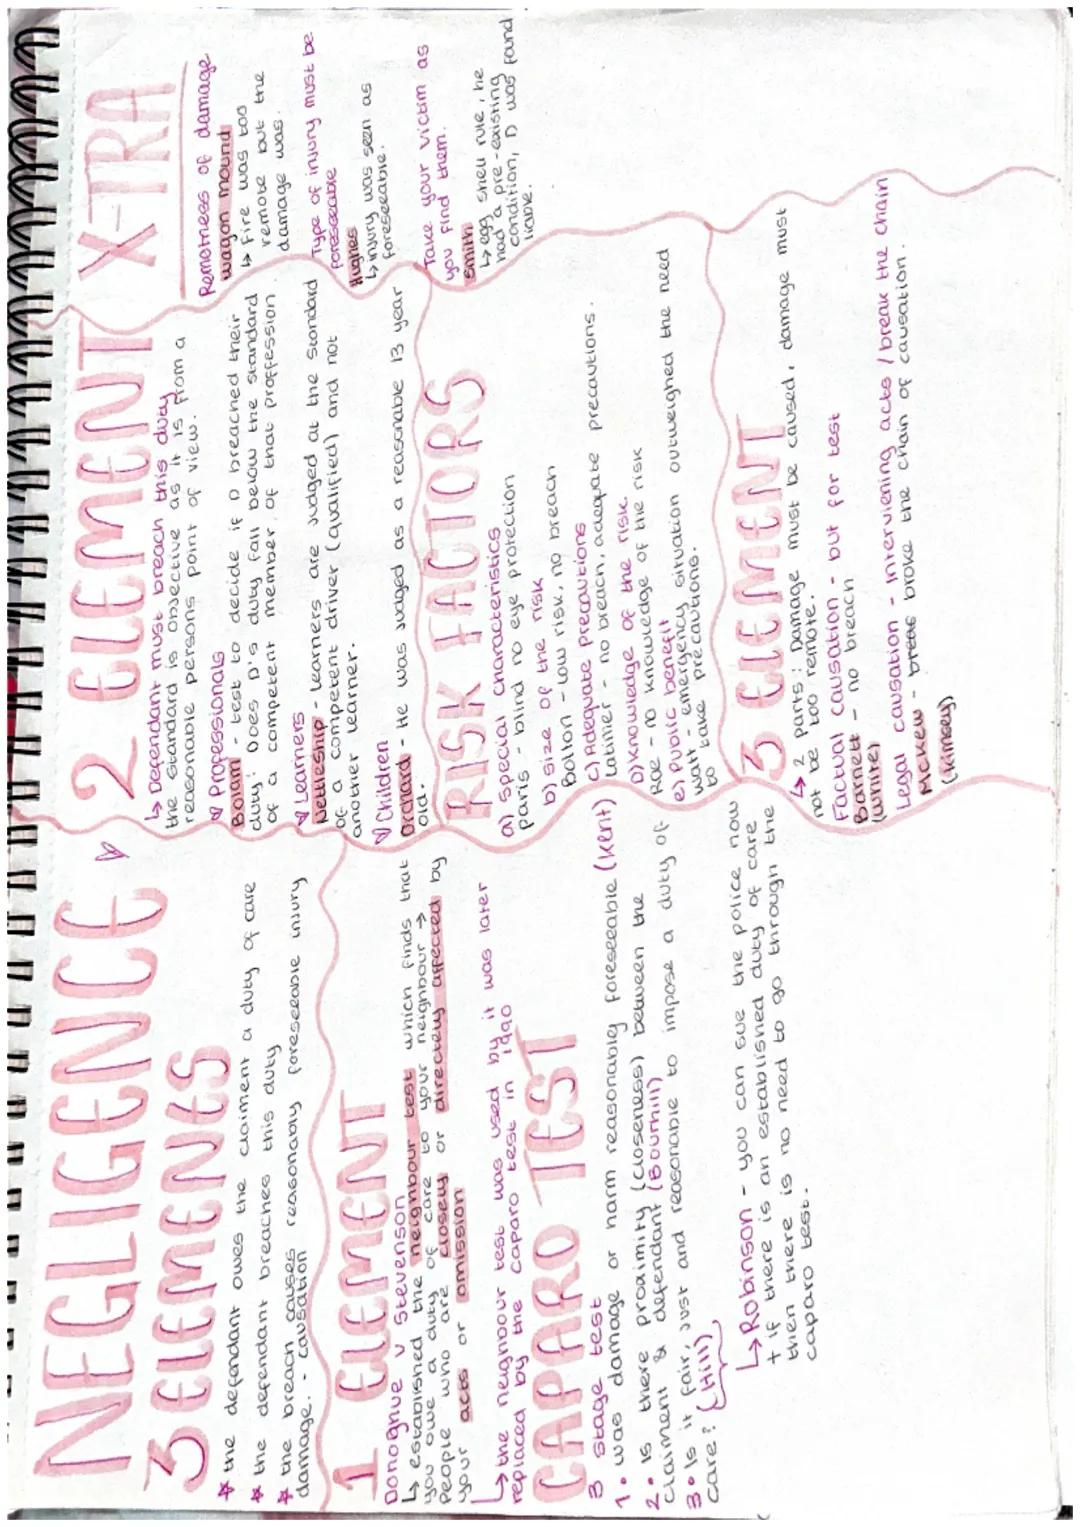 NEGLIGENCE
3 ELEMENES
the defendant owes the claiment a duty of care
the defendant breaches this duty
the breach causes reasonably foreseeable injury
damage. - causation
1 ELEMENT
Donoghue v Stevenson
↳ established the neighbour test which finds that
you owe a duty of care to your neighbour →
People who are closely or directely affected by
your acts or omission
↳ the neighbour test was used by it was later
replaced by the caparo test in 1990
CAPARO TEST
3 stage test
1. was damage or harm reasonably foreseeable (Kent)
2. Is there proximity (closeness) between the
claiment & defendant (Bournill)
3. Is it fair, just and reasonable to impose a duty of
care? (Hill)
↳ Robinson - you can sue the police now
+ if there is an established duty of care
then there is no need to go through the
caparo test.
2 ELEMENT
↳ Defendant must breach this duty
the standard is objective as it is from a
reasonable persons point of view.
Professionals
Bolam - test to decide if D breached their
duty: Does D's duty fall below the standard
of a competent member of that proffession.
Learners
Nettleship - learners are judged at the standard
of a competent driver (qualified) and not
another learner.
Children
Orchard - He was judged as a reasonable 13 year
old.
RISK FACTORS
a) Special characteristics
paris - blind no eye protection
b) size of the risk
Bolton - low risk, no breach
c) Adequate precautions
Latimer - no breach, adequate precautions.
D) Knowledge of the risk
Roe - no knowledge of the risk
e) Public benefit
watt - emergency situation outweighed the need
to take precautions.
3 ELEMENT
↳ 2 parts: Damage must be caused, damage must
not be too remote.
Factual causation - but for test
Barnett - no breach
(white)
Legal causation - interviening acts / break the chain
McKew - broke the chain of causation.
(kimsey)
X-TRA
Remotness of damage
wagon mound
↳ Fire was too
remote but the
damage was.
Type of injury must be
foreseeable
Hughes
↳ injury was seen as
foreseeable.
Take your victim as
you find them.
Smith
↳ egg shell rule, he
had a pre-existing
condition, D was found
liable.